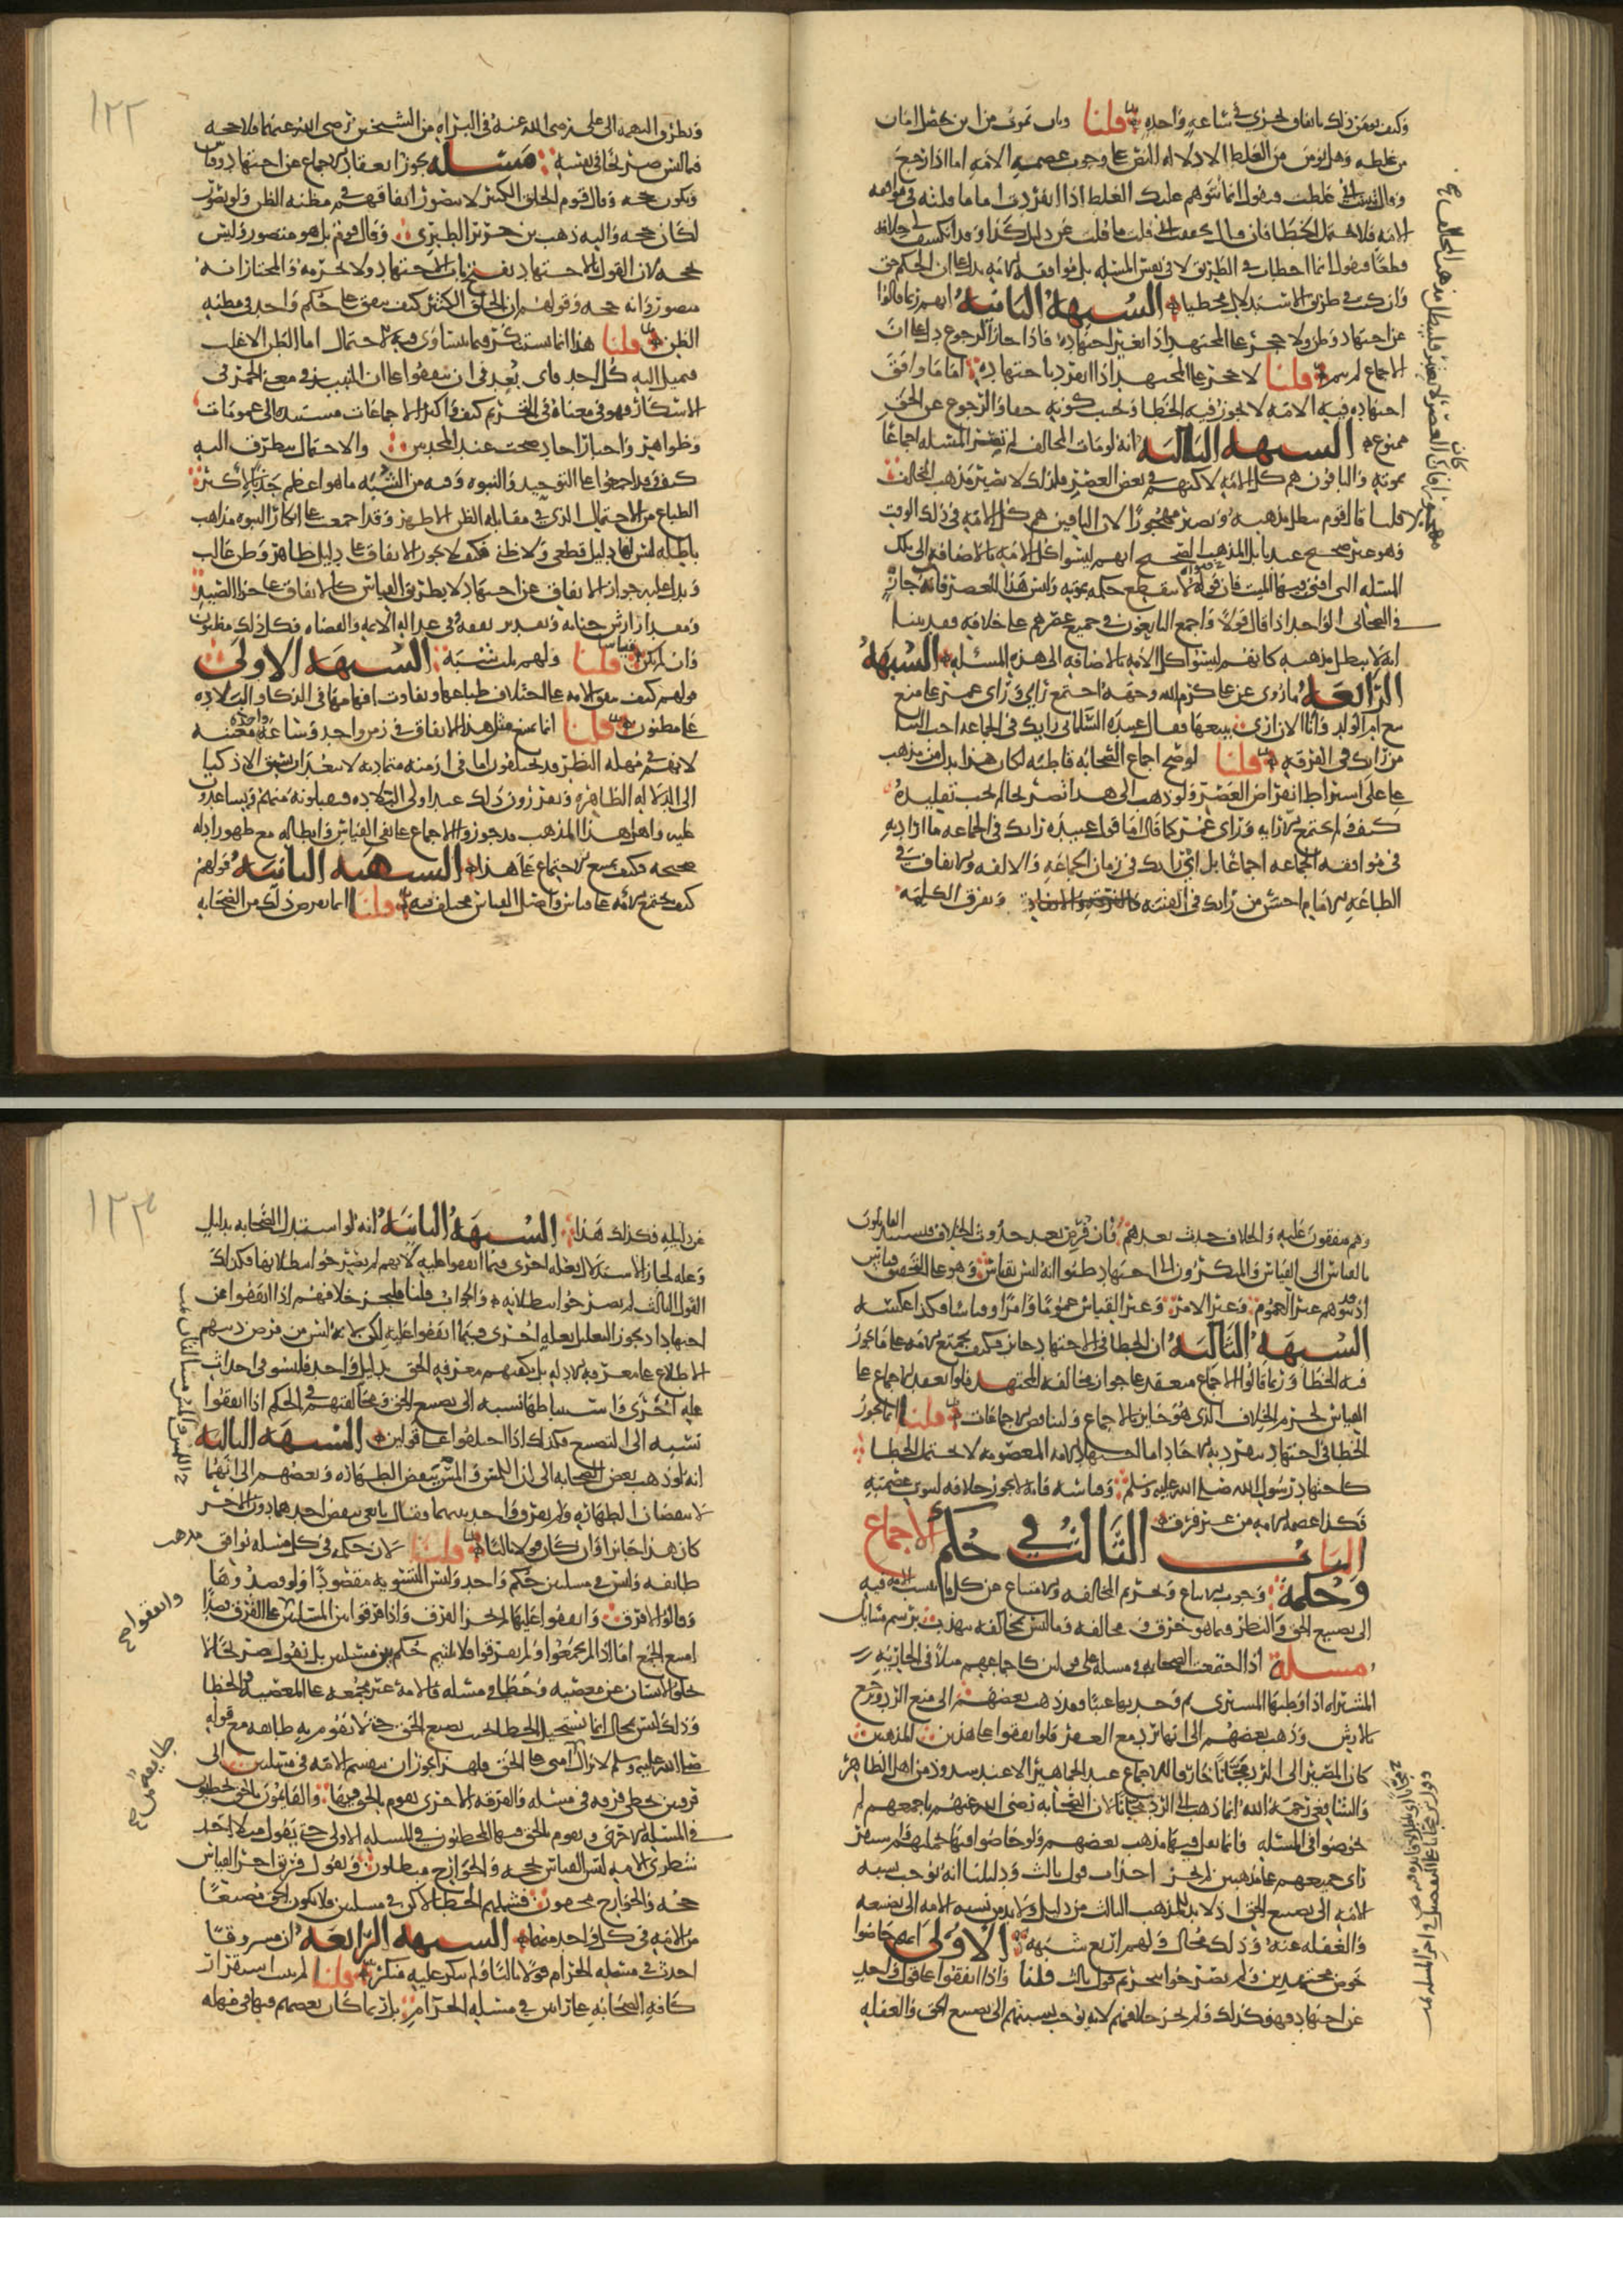 وكيف يؤمن ذلك باتفاق يجري في ساعة واحدة قلنا وبان تموت من اين يحصل امان
من غلطه وهل يؤمن من الغلط الا دلالة النص على وجوب عصمة الامة اما اذا رجع
وقال تبينت اني غلطت فنقول انما يتوهم عليك الغلط اذا انفردت اما ما قلته في موافقة
الامة فلا يحتمل الخطا فان قال تحققت اني قلت ما قلت عن دليل كذا وقد انكشف لي خلافه
قطعا فنقول انما اخطات في الطريق لا في نفس المسئلة بل موافقة الامة يدل على ان الحكم حق
وان كنت في طريق الاستدلال مخطيا الشبهة الثانية انهم ربما قالوا
عن اجتهاد وظن ولا حجر على المجتهد اذا تغير اجتهاده فاذا جاز الرجوع دل على ان
الاجماع لم يتم قلنا لا حجر على المجتهد اذا انفرد باجتهاده اما ما وافق
اجتهاده فيه الامة لا يجوز فيه الخطا ويجب كونه حقا والرجوع عن الحق
ممنوع الشبهة الثالثة انه لو مات المخالف لم تصر المسئلة اجماعا
بموته والباقون هم كل الامة لاكنهم في بعض العصر فلذلك لا يصير مذهب المخالف
قلنا قال قوم يبطل مذهبه ويصير مهجورا لان الباقين هم كل الامة في ذلك الوقت
وهو غير صحيح عندنا بل المذهب الصحيح انهم ليسوا كل الامة بالاضافة الى تلك
المسئلة التي افتى فيها الميت فان فتواه لا ينقطع حكمه بموته وليس هذا للعصر فانه جار
في الصحابي الواحد اذا قال قولا واجمع التابعون في جميع عصرهم على خلافه فقد بينا
انه لا يبطل مذهبه كانهم ليسوا كل الامة بالاضافة الى هذه المسئلة الشبهة
الرابعة ما روي عن علي كرم الله وجهه اجتمع رايي وراي عمر على منع
بيع ام الولد وانا الان ارى بيعها فقال عبيدة السلماني رايك في الجماعة احب الينا
من رايك في الفرقة قلنا لو صح اجماع الصحابة قاطبة لكان هذا يدل من مذهب
علي على اشتراط انقراض العصر ولو ذهب الى هذا صريحا لم يجب تقليده
كيف ولم يجتمع الا رايه وراي عمر كما قال اما قول عبيدة رايك في الجماعة ما اراد به
في موافقة الجماعة اجماعا بل اي رايك في زمان الجماعة والالفة والاتفاق في
الطاعة للامام احسن من رايك في الفتنة وتفرق الكلمة
١٢٢
وتطرق التهمة الى علي رضي الله عنه في البراة من الشيخين رضي الله عنهما فلا حجة
فيما ليس صريحا في نفسه مسئلة يجوز انعقاد الاجماع عن اجتهاد وقياس
ويكون حجة وقال قوم الخلق الكثير لا يتصور اتفاقهم في مظنة الظن ولو تصور
لكان حجة واليه ذهب بن جرير الطبري وقال قوم بل هو متصور وليس
بحجة لان القول بالاجتهاد يفتح باب الاجتهاد ولا يحرمه والمختار انه
متصور وانه حجة وقولهم ان الخلق الكثير كيف يتفق على حكم واحد في مظنة
الظن قلنا هذا انما يستنكر فيما يتساوى فيه الاحتمال اما الظن الاغلب
فيميل اليه كل احد فاي بعد في ان يتفقوا على ان النبيذ في معنى الخمر في
الاسكار فهو في معناه في التحريم كيف واكثر الاجماعات مستندة الى عمومات
وظواهر واخبار احاد صحت عند المحدثين والاحتمال يتطرق اليه
كيف وقد اجمعوا على التوحيد والنبوة وفيه من الشبه ما هو اعظم جذبا لاكثر
الطباع من الاحتمال الذي في مقابلة الظن الاظهر وقد اجمعت على انكار النبوة مذاهب
باطلة ليس لها دليل قطعي ولا ظني فكيف لا يجوز الاتفاق على دليل ظاهر وظن غالب
ويدل عليه جواز الاتفاق عن اجتهاد لا بطريق القياس كالاتفاق على جزا الصيد
ومقدار ارش جناية وتقدير نفقة وفي عدالة الائمة والقضاة وكل ذلك مظنون
وان لم يكن قياسا قلنا ولهم ثلث شبه الشبهة الاولى
قولهم كيف يتفق الامة على اختلاف طباعها وتفاوت افهامها في الذكا والبلادة
على مظنون قلنا انما يمتنع مثل هذا الاتفاق في زمن واحد وساعة معينة
لانهم في مهلة النظر قد يختلفون اما في ازمنة متمادية لا يبعد ان يسبق الاذكيا
الى الدلالة الظاهرة ويقررون ذلك عند اولي البلادة فيقبلونه منهم ويساعدون
عليه واهل هذا المذهب قد جوزوا الاجماع على نفي القياس وابطاله مع ظهور ادلة
صحته فكيف يمتنع الاجتماع على هذا الشبهة الثانية قولهم
كيف تجتمع الامة على قياس واصل القياس مختلف فيه قلنا انما نفرض ذلك من الصحابة
وهم متفقون عليه والخلاف حدث بعدهم فان فرض بعد حدوث الخلاف فيستند القايلون
بالقياس الى القياس والمنكرون الى اجتهاد ظنوا انه ليس بقياس وهو على التحقيق قياس
اذ قد يتوهم غير العموم وغير الامر وغير القياس عموما وامرا وقياسا فكذا عكسه
الشبهة الثالثة ان الخطا في الاجتهاد جايز فكيف تجتمع الامة على ما يجوز
فيه الخطا وربما قالوا الاجماع منعقد على جواز مخالفة المجتهد فلو انعقد الاجماع على
القياس لحرم الخلاف الذي هو جايز بالاجماع ولتناقض الاجماعات قلنا انما يجوز
الخطا في اجتهاد ينفرد به الاحاد اما اجتهاد الامة المعصومة لا يحتمل الخطا
كاجتهاد رسول الله صلى الله عليه وسلم وقياسه فانه لا يجوز خلافه لثبوت عصمته
فكذا عصمة الامة من غير فرق
الباب الثالث في حكم الاجماع
وحكمه وجوب الاتباع وتحريم المخالفة والامتناع عن كل ما ينسب الامة فيه
الى تضييع الحق والنظر فيما هو خرق ومخالفة وما ليس بمخالفة يتهذب برسم مسايل
مسئلة اذا اجتمعت الصحابة في مسئلة على قولين كاجماعهم مثلا في الجارية
المشتراة اذا وطيها المشتري ثم وجد بها عيبا فقد ذهب بعضهم الى منع الرد وترجع
بالارش وذهب بعضهم الى انها ترد مع العقر فلو اتفقوا على هذين المذهبين
كان المصير الى الرد مجانا خارقا للاجماع عند الجماهير الا عند شذوذ من اهل الظاهر
والشافعي رحمه الله انما ذهب الى الرد مجانا لان الصحابة رضي الله عنهم باجمعهم لم
يخوضوا في المسئلة وانما نقل فيها مذهب بعضهم ولو خاضوا فيها بجملتهم ولم يستقر
راي جميعهم على مذهبين لم يجز احداث قول ثالث ودليلنا انه يوجب نسبة
الامة الى تضييع الحق اذ لا بد للمذهب الثالث من دليل ولا بد من نسبة الامة الى تضييعه
والغفلة عنه وذلك محال ولهم اربع شبه الاولى انهم خاضوا
خوض مجتهدين ولم يصرحوا بتحريم قول ثالث قلنا واذا اتفقوا على قول واحد
عن اجتهاد فهو كذلك ولم يجز خلافهم لانه يوجب نسبتهم الى تضييع الحق والغفلة
١٢٣
عن دليله فكذلك هذا الشبهة الثانية انه لو استدل الصحابة بدليل
وعلة لجاز الاستدلال بعلة اخرى فيما اتفقوا عليه لانهم لم يصرحوا ببطلانها فكذلك
القول الثالث لم يصرحوا ببطلانه والجواب قلنا فليجز خلافهم اذا اتفقوا عن
اجتهاد اذ يجوز التعليل بعلة اخرى فيما اتفقوا عليه لكن لانه ليس من فرض دينهم
الاطلاع على معرفة الادلة بل يكفيهم معرفة الحق بدليل واحد فليس في احداث
علة اخرى واستنباطها نسبة الى تضييع الحق وفي مخالفتهم في الحكم اذا اتفقوا
نسبة الى التضييع فكذلك اذا اختلفوا على قولين الشبهة الثالثة
انه لو ذهب بعض الصحابة الى ان اللمس والمس ينقض الطهارة وبعضهم الى انهما
لا ينقضان الطهارة ولم يفرق واحد بينهما فقال تابعي ينقض احدهما دون الاخر
كان هذا جايزا وان كان قولا ثالثا قلنا لان حكمه في كل مسئلة توافق مذهب
طايفة وليس في مسئلتين حكم واحد وليس التسوية مقصودا ولو قصدوها
وقالوا لا فرق واتفقوا عليها لم يجز الفرق واذا فرقوا بين المسئلتين على الفرق قصدا
امتنع الجمع اما اذا لم يجمعوا ولم يفرقوا فلا يلتئم حكم من مسئلتين بل نقول صريحا لا
يخلو الانسان عن معصية وخطا في مسئلة فالامة غير مجتمعة على المعصية والخطا
وذلك ليس بمحال انما يستحيل الخطا بحيث يضيع الحق حتى لا تقوم به طايفة مع قوله
صلى الله عليه وسلم لا تزال امتي على الحق فلهذا يجوز ان ينقسم الامة في مسئلتين الى
فرقتين تخطي فرقة في مسئلة والفرقة الاخرى تقوم بالحق فيها والقايمون بالحق يخطئون
في المسئلة الاخرى ويقوم بالحق فيها المخطئون في المسئلة الاولى حتى يقول مثلا احد
شطري الامة ليس القياس بحجة والخوارج مبطلون ويقول فريق اخر القياس
حجة والخوارج محقون فشملهم الخطا لاكن في مسئلتين فلا يكون الحق مضيعا
من الامة في كل واحد منهما الشبهة الرابعة ان مسروقا
احدث في مسئلة الحرام قولا ثالثا ولم ينكر عليه منكر قلنا لم يثبت استقرار
كافة الصحابة على رايين في مسئلة الحرام بل ربما كان بعضهم فيها في مهلة
واتفقوا صح